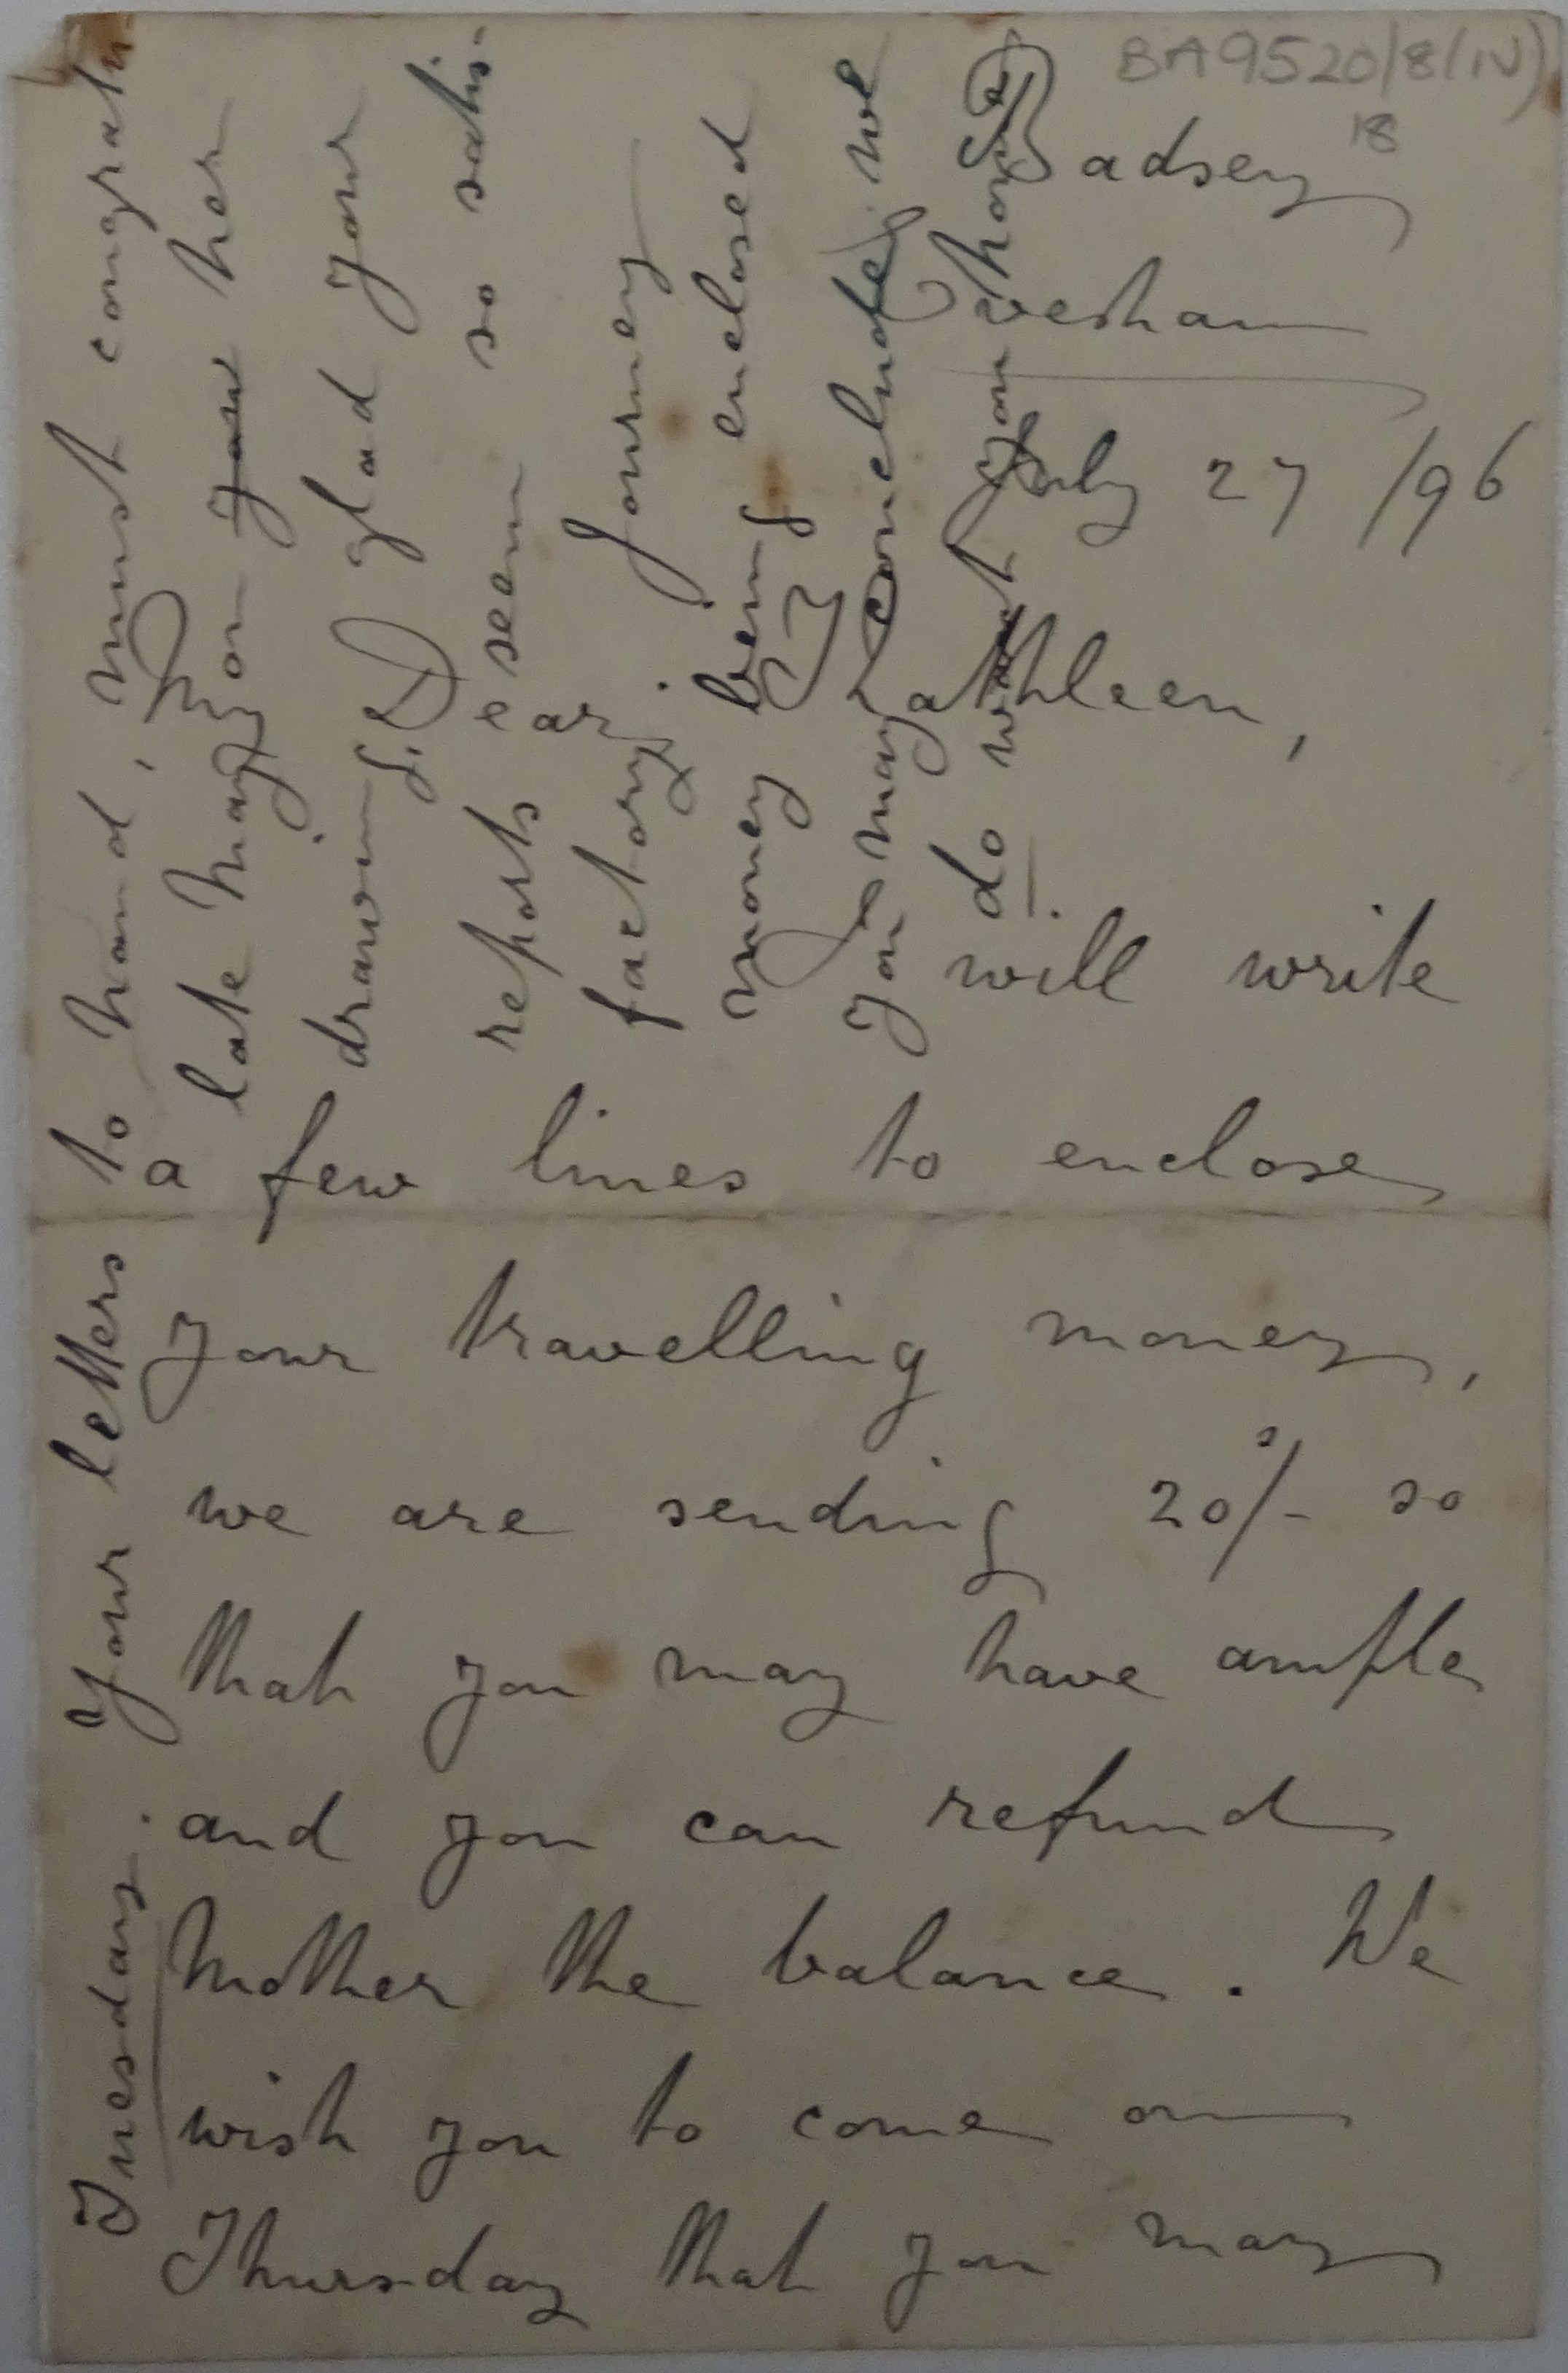 BA9520/8/(IV)
18
Badsey
Evesham
July 27/96
My Dear Kathleen,
I will write
a few lines to enclose
your travelling money,
we are sending 20s/- so
that you may have ample
and you can refund
Mother the balance. We
wish you to come on
Thursday that you may
Tuesday. Your letters to hand, must congratu-
late May on your her
drawing, glad your
reports seem so satis-
factory. journey
money being enclosed
you may conclude, we
do want you home